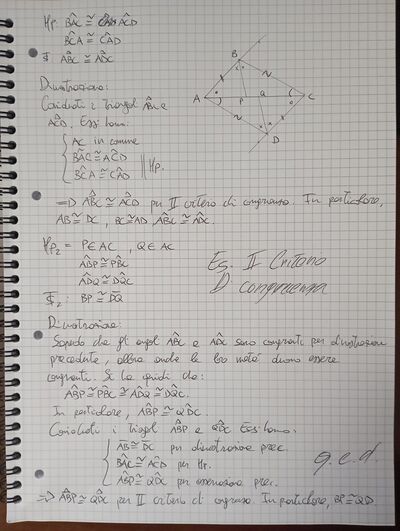 Hp BÂC ≅ AĈD
BĈA ≅ CÂD
AB̂C ≅ AD̂C
Dimostrazione:
Considerati i triangoli ABC e
ACD. Essi hanno:
AC in comune
BÂC ≅ AĈD
BĈA ≅ CÂD
Hp.
B
A
P
Q
C
D
=> AB̂C ≅ AĈD per II criterio di congruenza. In particolare,
AB ≅ DC, BC ≅ AD, AB̂C ≅ AD̂C.
Hp₂ = P∈AC, Q∈AC
AB̂P ≅ PB̂C
AD̂Q ≅ DQ̂C
₂: BP ≅ DQ
Es. II Criterio
Di congruenza
Dimostrazione:
Sapendo che gli angoli AB̂C e AD̂C sono congruenti per dimostrazione
precedente, allora anche le loro metà devono essere
congruenti. Si ha quindi che:
AB̂P ≅ PB̂C ≅ AD̂Q ≅ DQ̂C.
In particolare, AB̂P ≅ QD̂C.
Considerati i triangoli AB̂P e QD̂C Essi hanno:
AB ≅ DC per dimostrazione prec.
BÂC ≅ AĈD per Hp.
AB̂P ≅ QD̂C per osservazione prec.
q.e.d
=> AB̂P ≅ QD̂C per II criterio di congruenza. In particolare, BP ≅ QD.